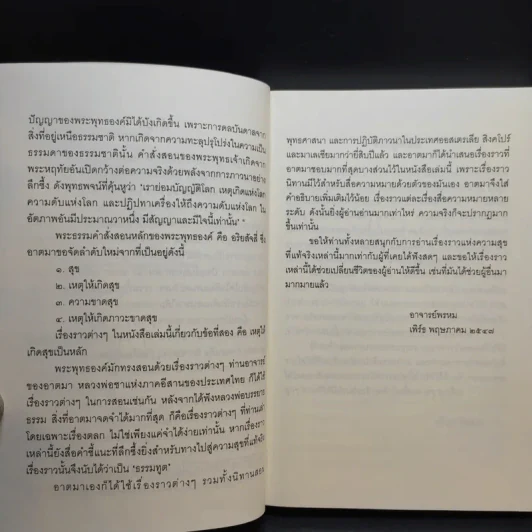 ปัญญาของพระพุทธองค์มิได้บังเกิดขึ้น เพราะการดลบันดาลจาก
สิ่งที่อยู่เหนือธรรมชาติ หากเกิดจากความทะลุปรุโปร่งในความเป็น
ธรรมดาของธรรมชาตินั้น คำสั่งสอนของพระพุทธเจ้าเกิดจาก
พระหฤทัยอันเปิดกว้างต่อความจริงด้วยพลังจากการภาวนาอย่าง
ลึกซึ้ง ดังพุทธพจน์ที่คุ้นหูว่า 'เราย่อมบัญญัติโลก เหตุเกิดแห่งโลก
ความดับแห่งโลก และปฏิปทาเครื่องให้ถึงความดับแห่งโลก ใน
อัตภาพอันมีประมาณวาหนึ่ง มีสัญญาและมีใจนี้เท่านั้น'
พระธรรมคำสั่งสอนหลักของพระพุทธองค์ คือ อริยสัจสี่ ซึ่ง
อาตมาขอจัดลำดับใหม่จากที่เป็นอยู่ดังนี้
๑. สุข
๒. เหตุให้เกิดสุข
๓. ความขาดสุข
๔. เหตุให้เกิดภาวะขาดสุข
เรื่องราวต่างๆ ในหนังสือเล่มนี้เกี่ยวกับข้อที่สอง คือ เหตุให้
เกิดสุขเป็นหลัก
พระพุทธองค์มักทรงสอนด้วยเรื่องราวต่างๆ ท่านอาจารย์
ของอาตมา หลวงพ่อชาแห่งภาคอีสานของประเทศไทย ก็ได้ใช้
เรื่องราวต่างๆ ในการสอนเช่นกัน หลังจากได้ฟังหลวงพ่อบรรยาย
ธรรม สิ่งที่อาตมาจดจำได้มากที่สุด ก็คือเรื่องราวต่างๆ ที่ท่านเล่า
โดยเฉพาะเรื่องตลก ไม่ใช่เพียงแค่จำได้ง่ายเท่านั้น หากเรื่องราว
เหล่านี้ยังสื่อคำชี้แนะที่ลึกซึ้งยิ่งสำหรับทางไปสู่ความสุขที่แท้จริง
เรื่องราวนั้นจึงนับได้ว่าเป็น 'ธรรมทูต'
อาตมาเองก็ได้ใช้เรื่องราวต่างๆ รวมทั้งนิทานสอน
พุทธศาสนา และการปฏิบัติภาวนาในประเทศออสเตรเลีย สิงคโปร์
และมาเลเซียมากว่ายี่สิบปีแล้ว และอาตมาก็ได้นำเสนอเรื่องราวที่
อาตมาชอบมากที่สุดบางส่วนไว้ในหนังสือเล่มนี้ เพราะเรื่องราว
นิทานมีไว้สำหรับสื่อความหมายด้วยตัวของมันเอง อาตมาจึงใส่
คำอธิบายเพิ่มเติมไว้น้อย เรื่องราวแต่ละเรื่องสื่อความหมายหลาย
ระดับ ดังนั้นยิ่งผู้อ่านอ่านมากเท่าไหร่ ความจริงก็จะปรากฏมาก
ขึ้นเท่านั้น
ขอให้ท่านทั้งหลายสนุกกับการอ่านเรื่องราวแห่งความสุข
ที่แท้จริงเหล่านี้มากเท่ากับผู้ที่เคยได้ฟังสดๆ และขอให้เรื่องราว
เหล่านี้ได้ช่วยเปลี่ยนชีวิตของผู้อ่านให้ดีขึ้น เช่นที่มันได้ช่วยผู้อื่นมา
มากมายแล้ว
อาจารย์พรหม
เพิร์ธ พฤษภาคม ๒๕๔๗